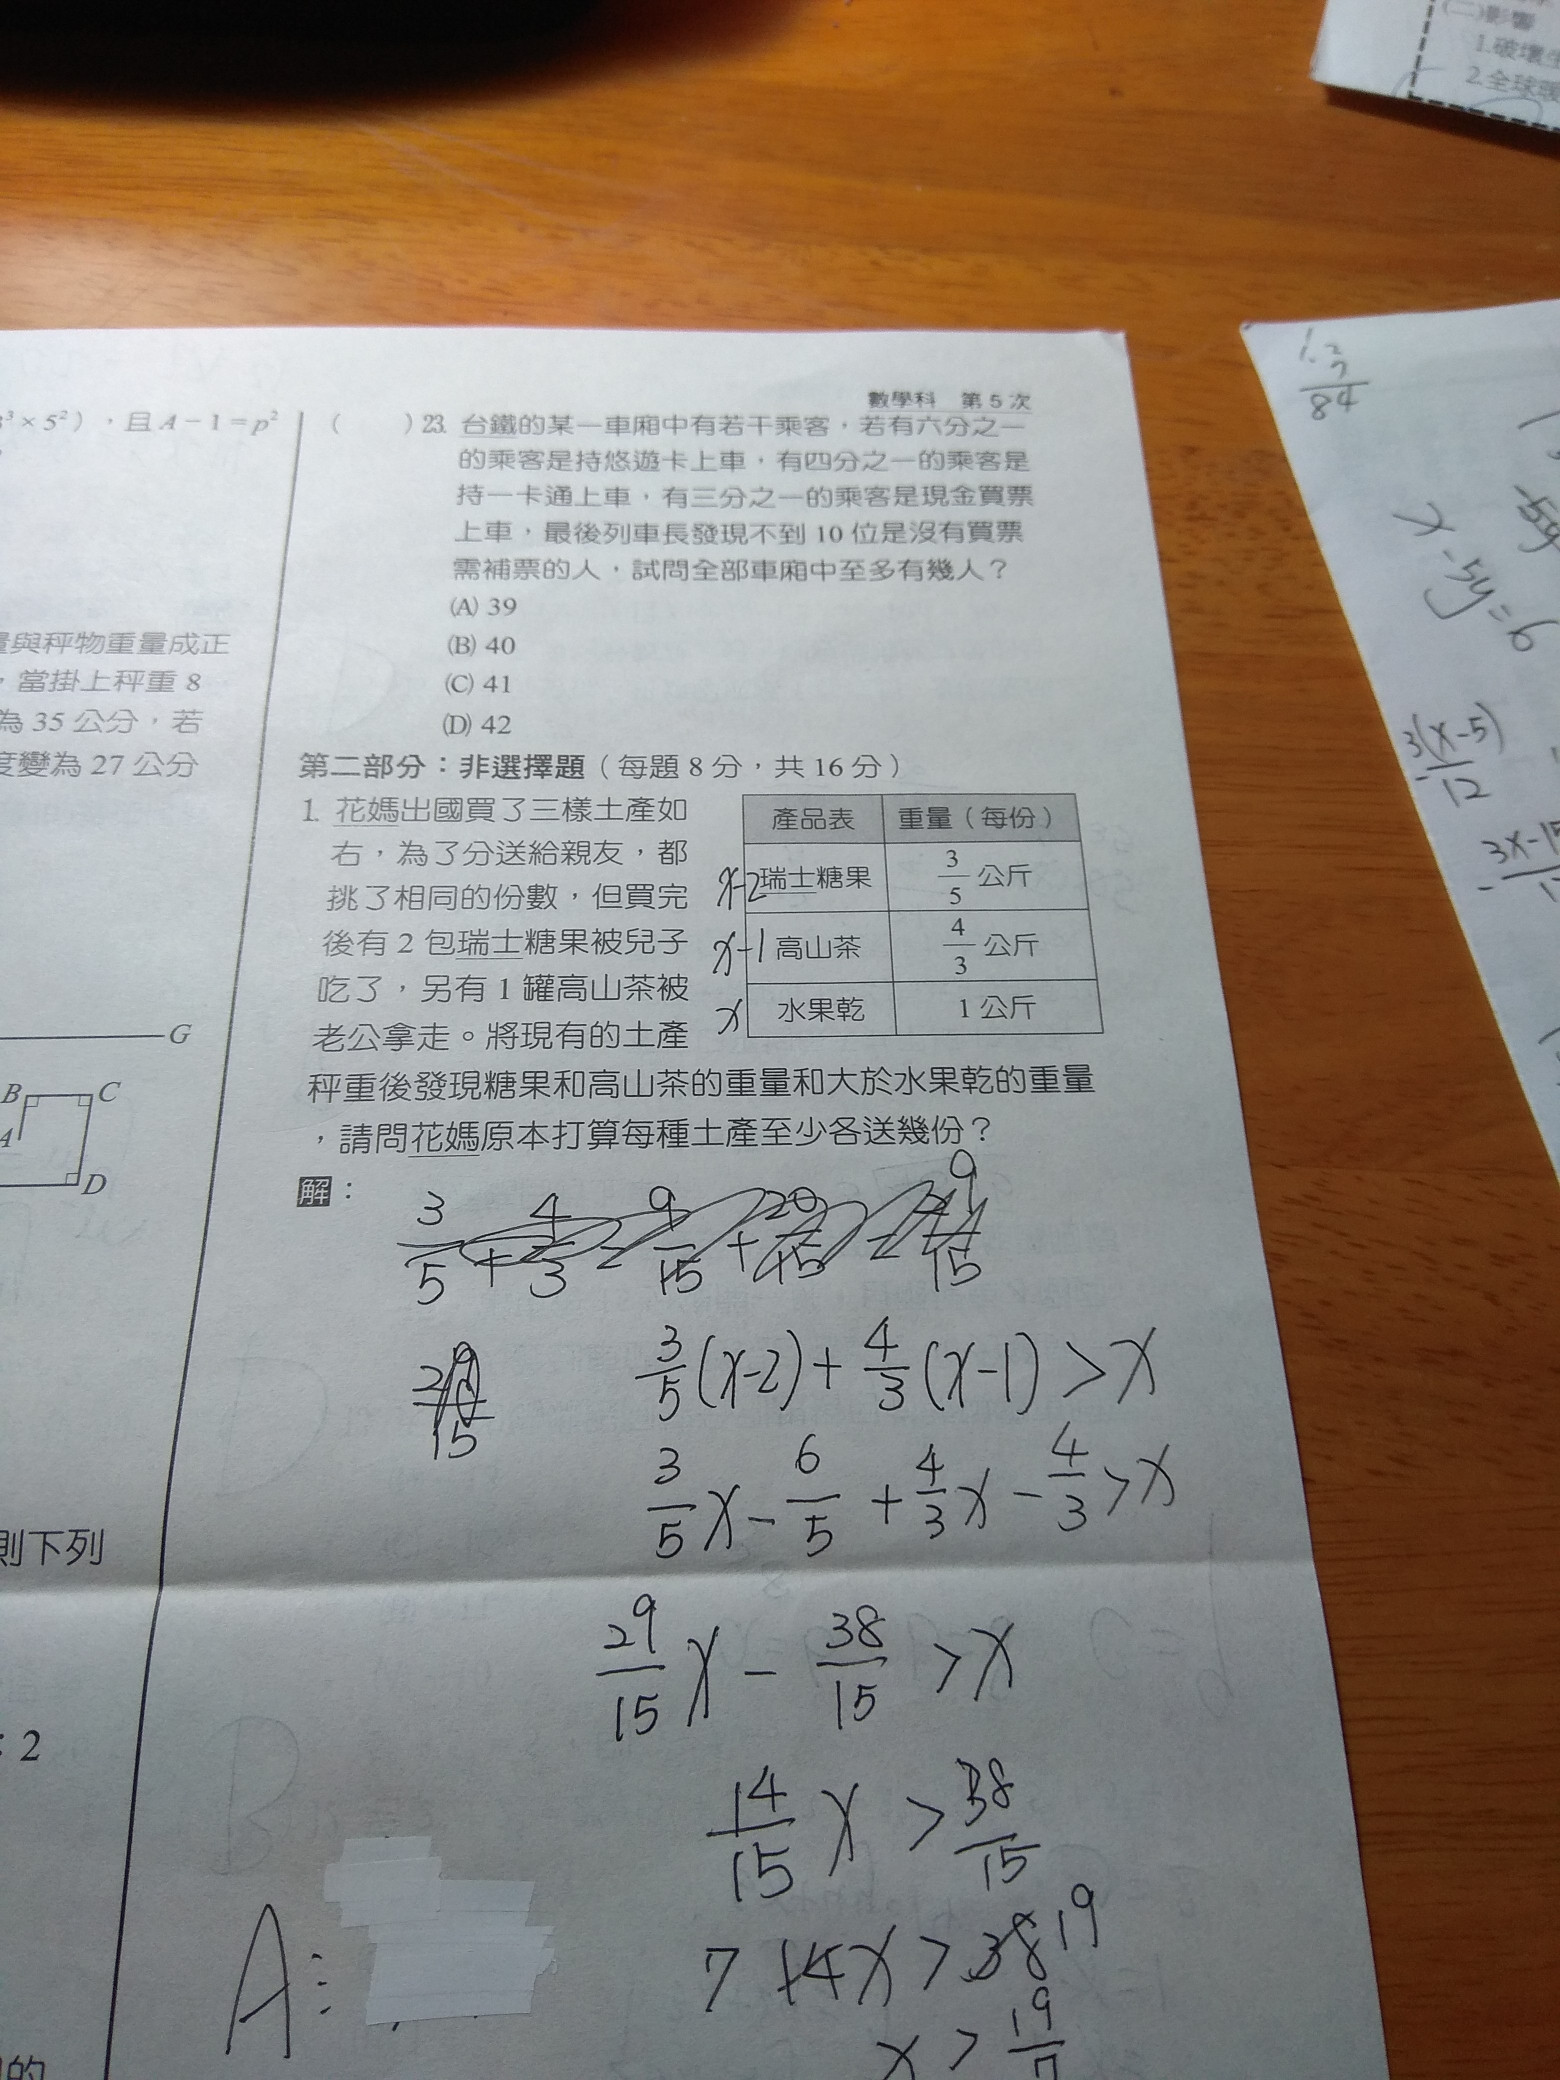 (二)影響
1.破壞生
2.全球暖
數學科 第5次
3³×5²),且A-1=p²
量與秤物重量成正
,當掛上秤重8
為35公分,若
度變為27公分
G
B
C
A
D
則下列
:2
的
( )23. 台鐵的某一車廂中有若干乘客,若有六分之一
的乘客是持悠遊卡上車,有四分之一的乘客是
持一卡通上車,有三分之一的乘客是現金買票
上車,最後列車長發現不到10位是沒有買票
需補票的人,試問全部車廂中至多有幾人?
(A) 39
(B) 40
(C) 41
(D) 42
第二部分:非選擇題(每題8分,共16分)
1. 花媽出國買了三樣土產如
右,為了分送給親友,都
挑了相同的份數,但買完
後有2包瑞士糖果被兒子
吃了,另有1罐高山茶被
老公拿走。將現有的土產
秤重後發現糖果和高山茶的重量和大於水果乾的重量
,請問花媽原本打算每種土產至少各送幾份?
產品表 重量(每份)
x-2 瑞士糖果 3/5 公斤
x-1 高山茶 4/3 公斤
x 水果乾 1公斤
解:
3/5(x-2)+4/3(x-1)>x
3/5x-6/5+4/3x-4/3>x
29/15x-38/15>x
14/15x>38/15
7 14x>38 19
x>19/7
A:
x-5y=6
3(x-5)
12
3x-15